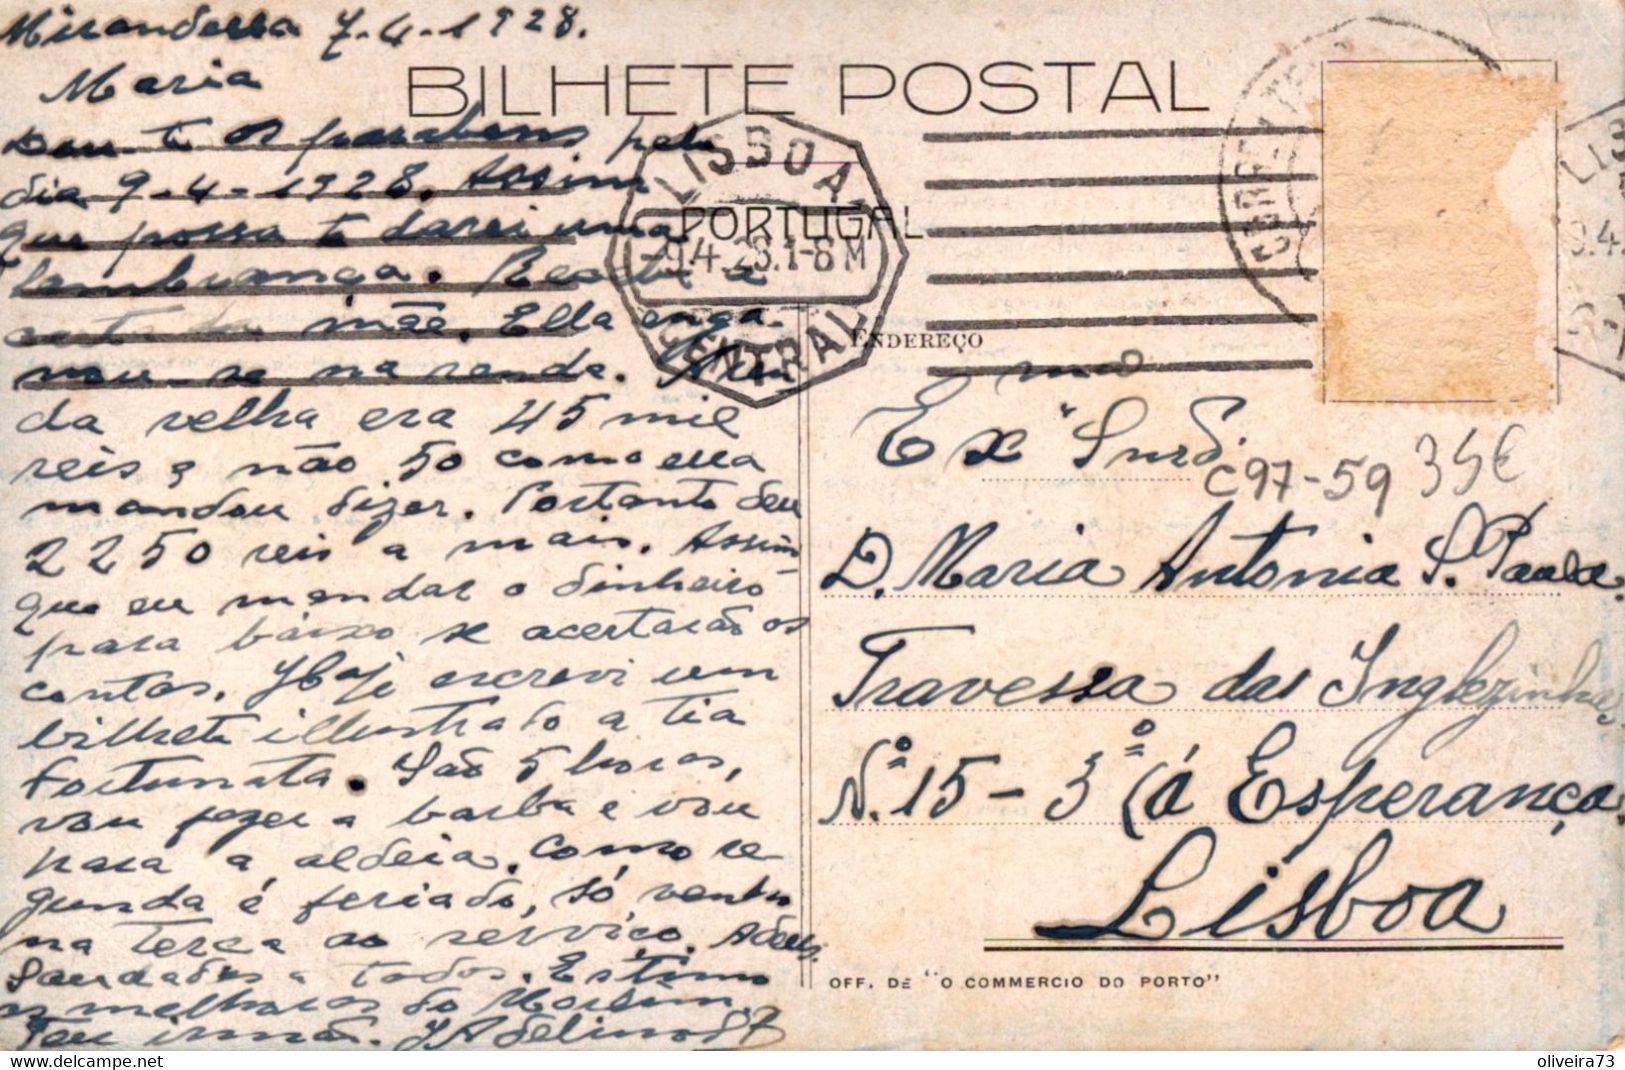 Mirandella 7-4-1928.
Maria
Dou-te os parabens pelo
dia 9-4-1928. Assim
que possa te darei uma
lembrança. Recebi a
carta da mãe. Ella enga-
nou-se na renda. A ren
da velha era 45 mil
réis e não 50 como ella
mandou dizer. Portanto deu
2250 reis a mais. Assim
que eu mandar o dinheiro
para baixo se acertarão as
contas. Hoje escrevi um
bilhete illustrado a tia
Fortunata. São 5 horas,
vou fazer a barba e vou
para a aldeia. Como se-
gunda é feriado, só venho
na terça ao serviço. Adeus.
Saudades a todos. Estimo
as melhoras do
Teu irmão. Adelino
BILHETE POSTAL
PORTUGAL
LISBOA
-9.4.28.1-8M
CENTRAL
ENDEREÇO
Ex ma Snrª
C97-59 35€
D. Maria Antonia S. Paula
Travessa das Inglezinhas
N.º 15-3º (á Esperança
Lisboa
OFF. DE "O COMMERCIO DO PORTO"
https://www.delcampe.net
oliveira73